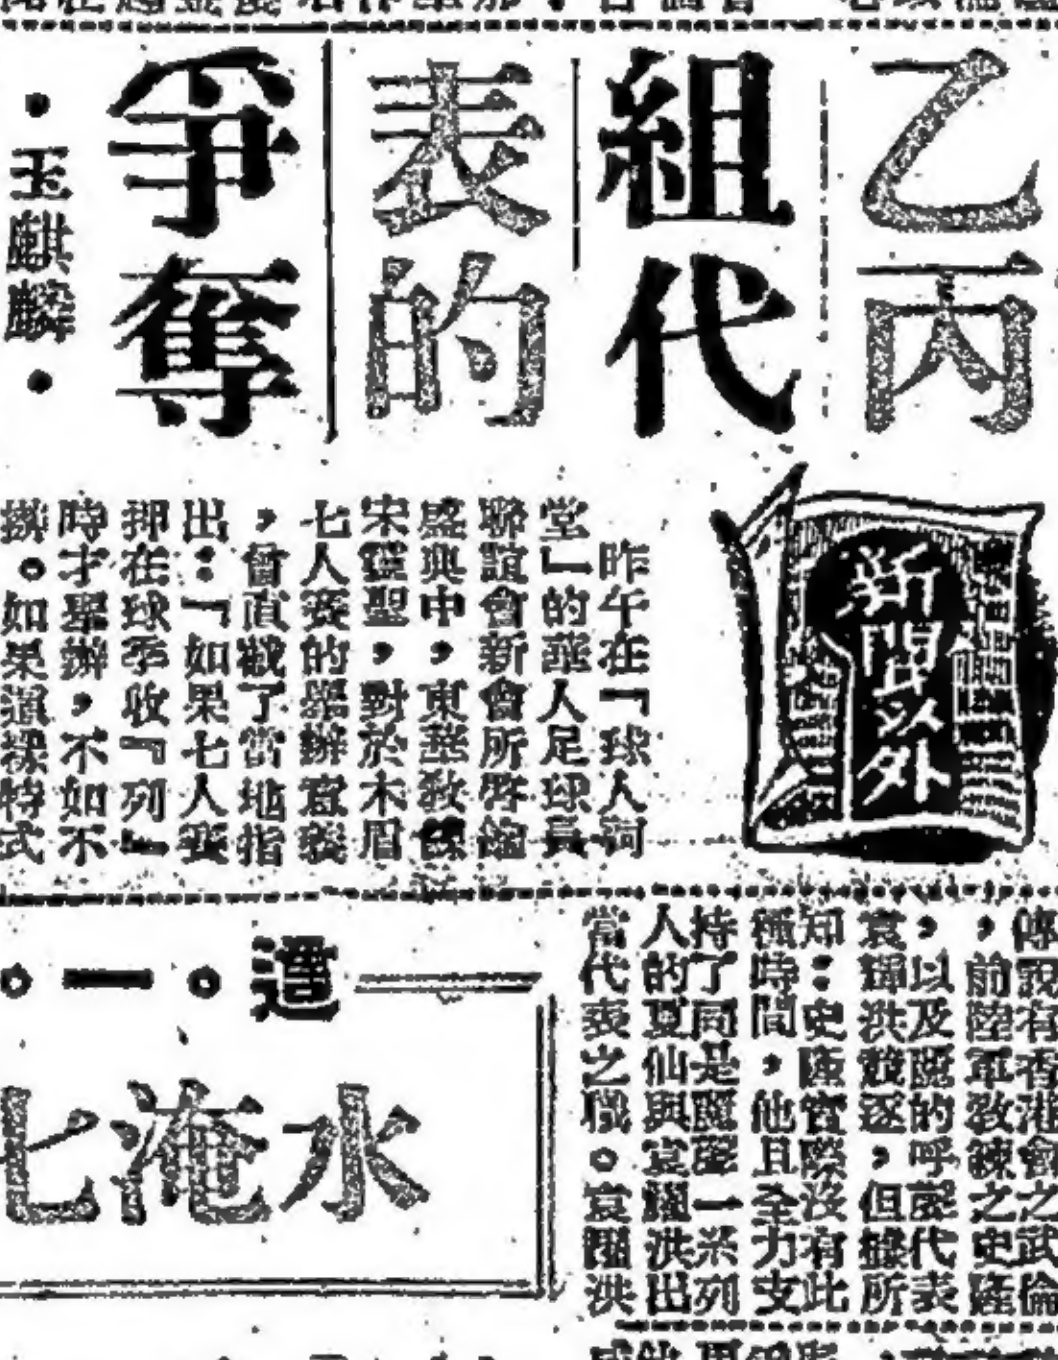 乙丙
組代
表的
爭奪
·玉麒麟·
新聞以外
昨午在『球人祠
堂』的華人足球員
聯誼會新會所啓鑰
盛典中,東華教練
宋靈聖,對於木眉
七人賽的舉辦意義
,曾直截了當地指
出:『如果七人賽
押在球季收『列』
時才舉辦,不如不
辦。如果這樣特式
傳說有香港會之武倫
,前陸軍教練之史隆
,以及 的呼聲代表
袁 洪競逐,但據所
知:史隆實際沒有此
種時間,他且全力支
持了同是 一系列
人的夏仙與袁 洪出
當代表之職。袁 洪
這。一。
水淹七